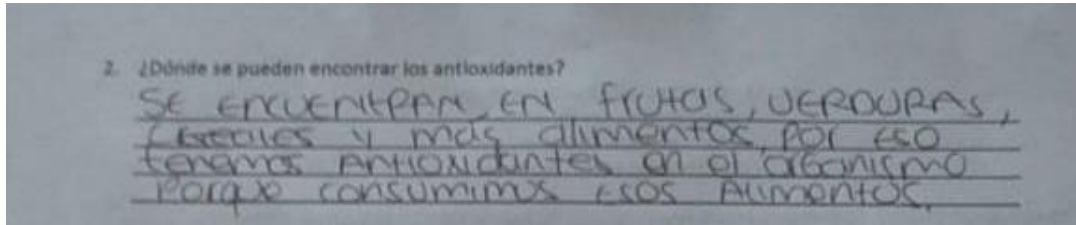 2. ¿Dónde se pueden encontrar los antioxidantes?
SE ENCUENtRAN EN frutas, VERDURAS,
CEREALES y más alimentos, POr ESO
tenemos ANtioxidantes en el OrGANISMO
Porque consumimos ESOS Alimentos.